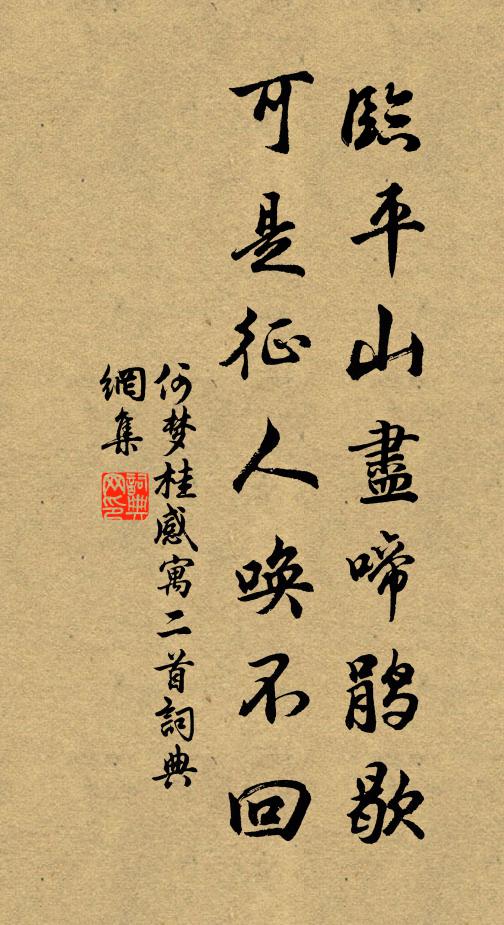 臨平山盡啼鵑歇
可是征人喚不回
何梦桂感寓二首詞典
網集
詞典
网印